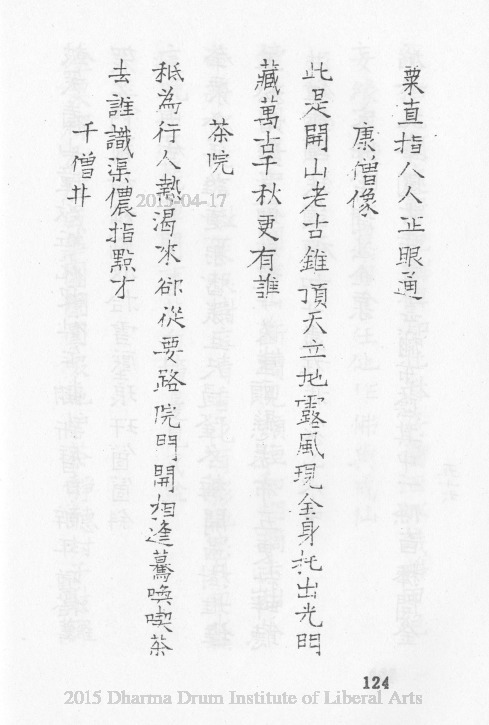 粟直指人人正眼通
康僧像
此是開山老古錐頂天立地露風現全身托出光明
藏萬古千秋更有誰
茶院
秖為行人熱渴來卻從要路院門開相逢驀喚喫茶
去誰識渠儂指點才
千僧井
124
2015-04-17
2015 Dharma Drum Institute of Liberal Arts